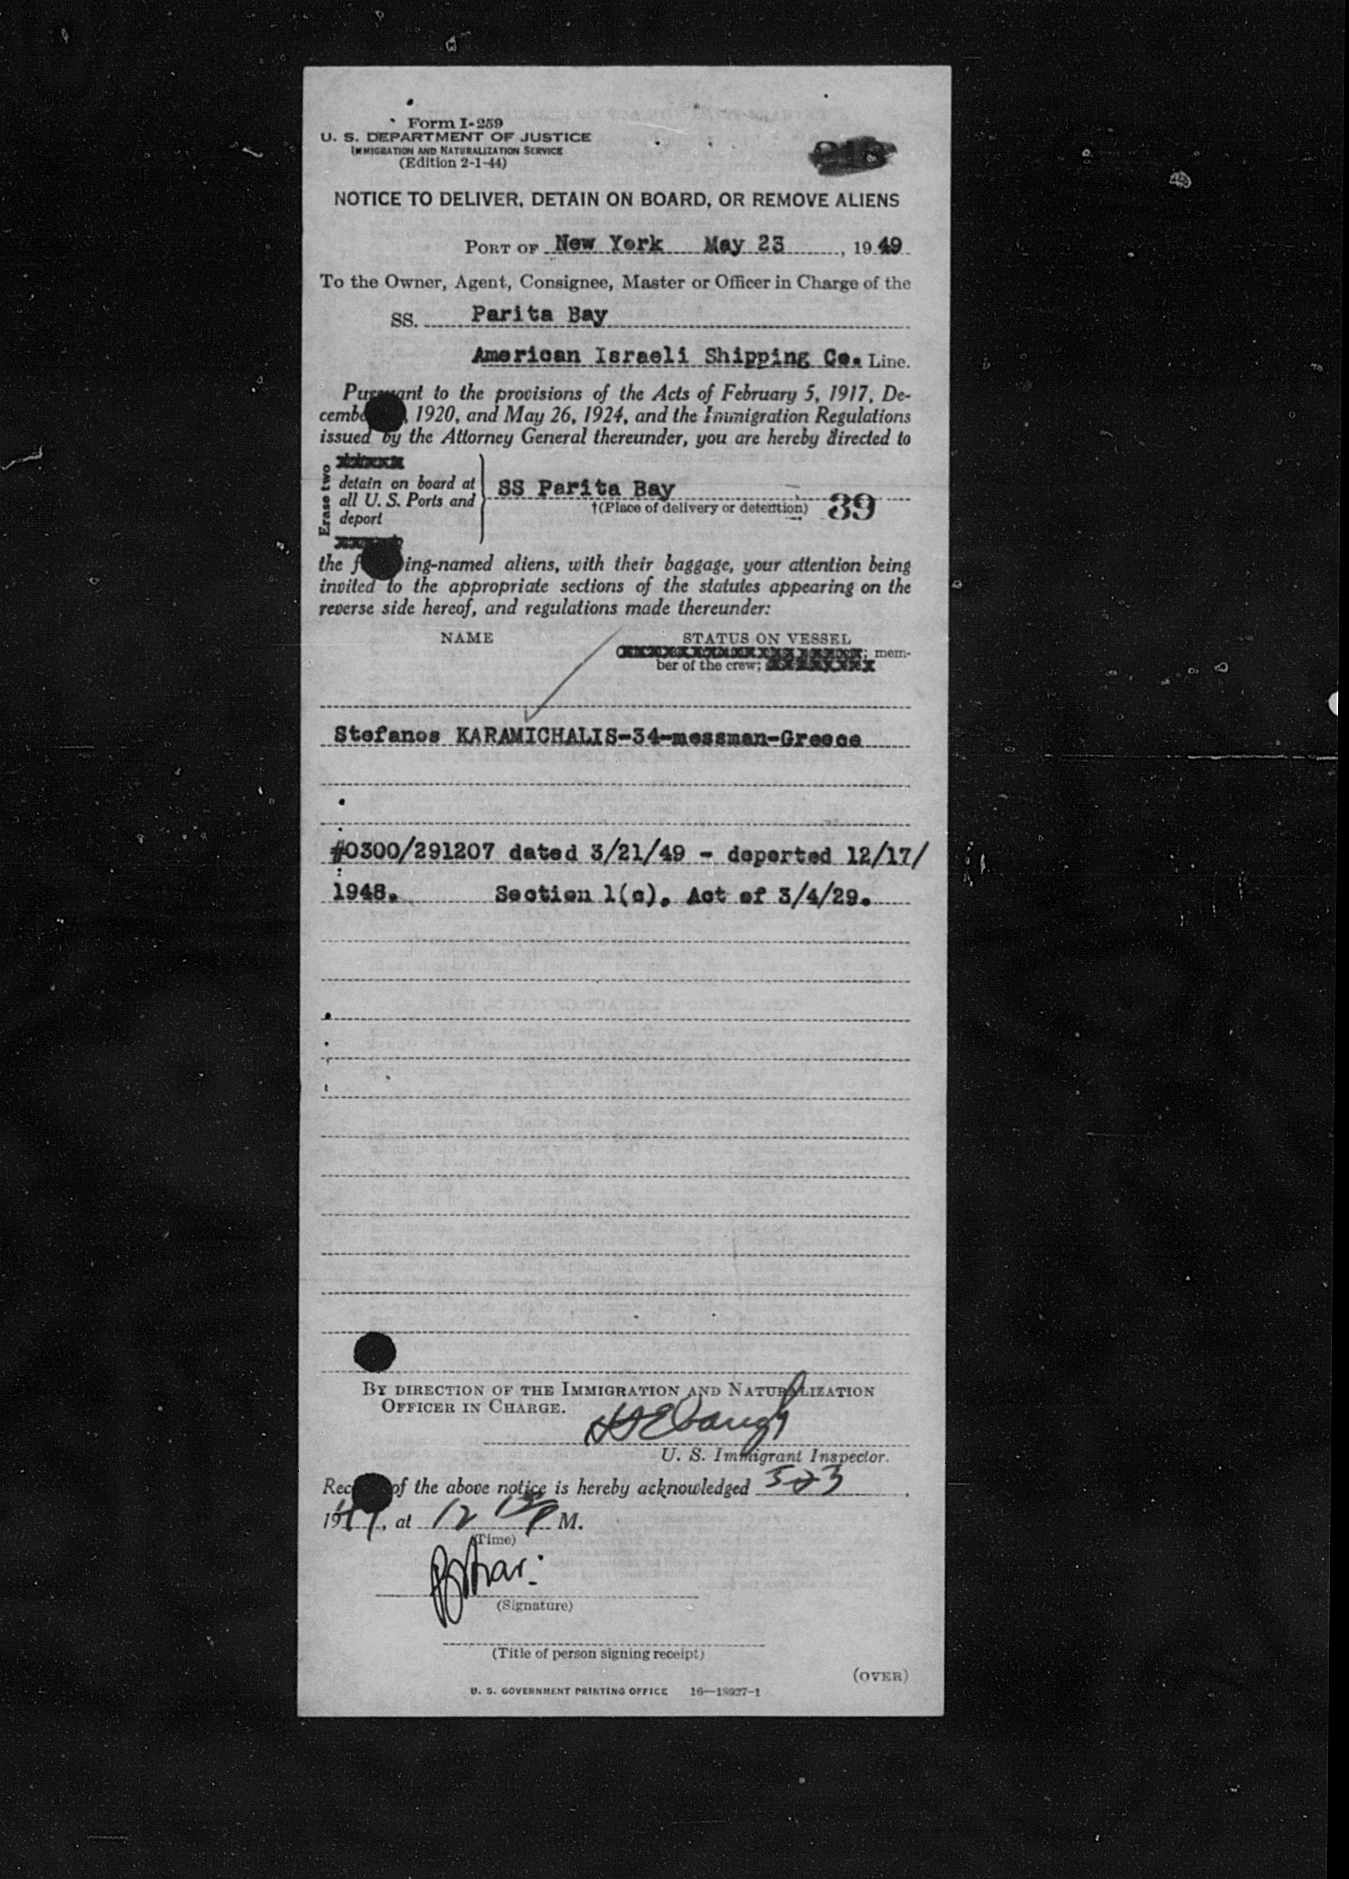 Form I-259
U. S. DEPARTMENT OF JUSTICE
IMMIGRATION AND NATURALIZATION SERVICE
(Edition 2-1-44)
NOTICE TO DELIVER, DETAIN ON BOARD, OR REMOVE ALIENS
PORT OF New York May 23, 1949
To the Owner, Agent, Consignee, Master or Officer in Charge of the
SS. Parita Bay
American Israeli Shipping Co. Line.
Pursuant to the provisions of the Acts of February 5, 1917, De-
cembe , 1920, and May 26, 1924, and the Immigration Regulations
issued by the Attorney General thereunder, you are hereby directed to
Erase two
detain on board at
all U. S. Ports and
deport
SS Parita Bay
†(Place of delivery or detention)
39
the f ing-named aliens, with their baggage, your attention being
invited to the appropriate sections of the statutes appearing on the
reverse side hereof, and regulations made thereunder:
NAME STATUS ON VESSEL
; mem-
ber of the crew;
Stefanos KARAMICHALIS-34-messman-Greece
#0300/291207 dated 3/21/49 - deported 12/17/
1948. Section 1(c), Act of 3/4/29.
BY DIRECTION OF THE IMMIGRATION AND NATURALIZATION
OFFICER IN CHARGE.
U. S. Immigrant Inspector.
Rec of the above notice is hereby acknowledged 5-23,
1949, at 12 P M.
(Time)
(Signature)
(Title of person signing receipt)
(OVER)
U. S. GOVERNMENT PRINTING OFFICE 16—18927-1